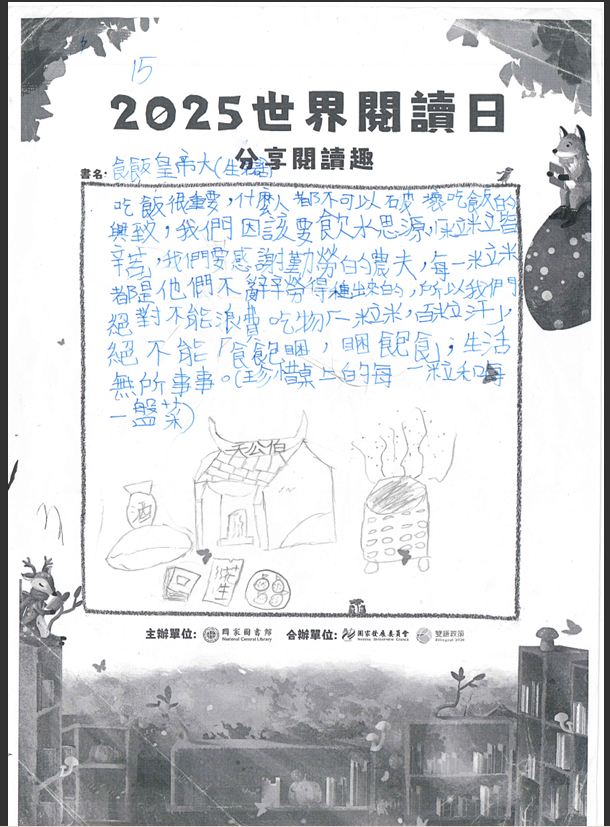 15
2025世界閱讀日
分享閱讀趣
書名: 食飯皇帝大(生活諺)
吃飯很重要，什麼人都不可以破壞吃飯的
興致，我們因該要飲水思源，「粒粒皆
辛苦」，我們要感謝勤勞的農夫，每一粒米
都是他們不辭辛勞得種出來的，所以我們
絕對不能浪費吃物「一粒米，百粒汗」，
絕不能「食飽睏，睏飽食」，生活
無所事事。(珍惜桌上的每一粒和每
一盤菜)
天公伯
酒
花生
主辦單位: 國家圖書館 National Central Library 合辦單位: 國家發展委員會 National Development Council 雙語政策 Bilingual 2030